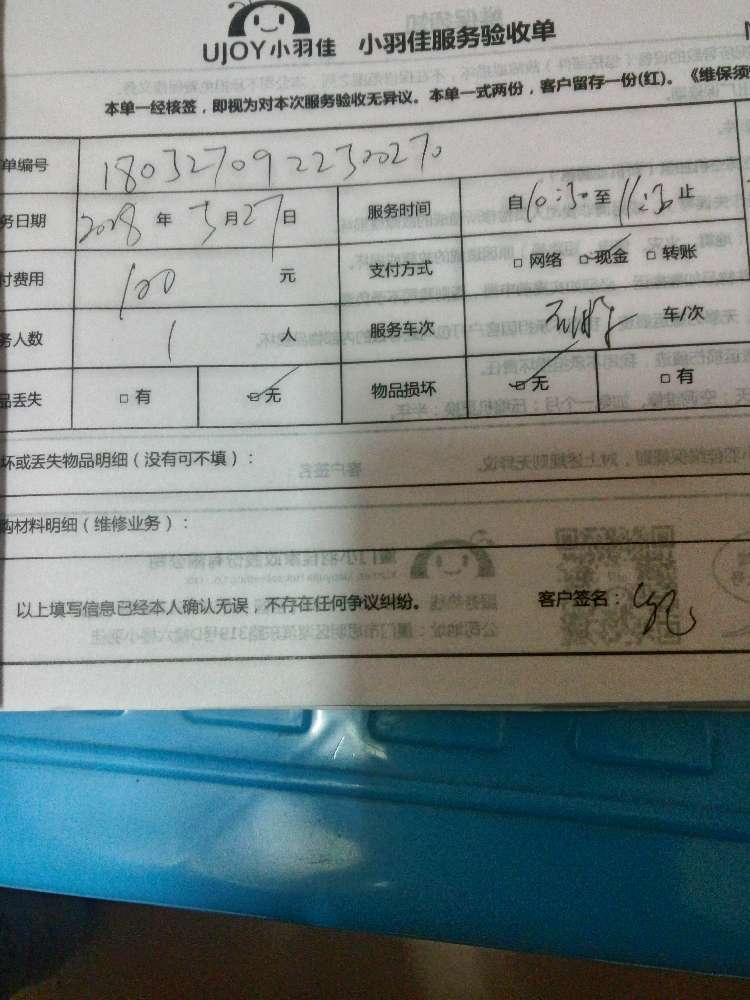 UJOY小羽佳 小羽佳服务验收单
本单一经核签，即视为对本次服务验收无异议。本单一式两份，客户留存一份(红)。《维保须
单编号 180327092230270
务日期 2018 年 3 月 27 日 服务时间 自 10:30 至 11:30 止
付费用 100 元 支付方式 □ 网络 □ 现金 □ 转账
务人数 1 人 服务车次 车/次
品丢失 □ 有 □ 无 物品损坏 □ 无 □ 有
坏或丢失物品明细（没有可不填）：
购材料明细（维修业务）：
以上填写信息已经本人确认无误，不存在任何争议纠纷。 客户签名：